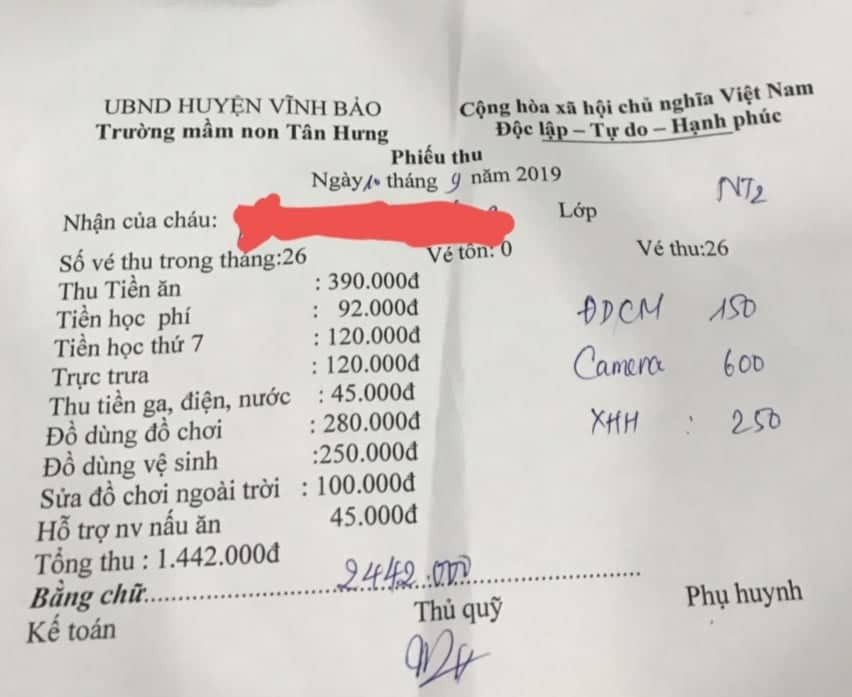 UBND HUYỆN VĨNH BẢO
Trường mầm non Tân Hưng
Cộng hòa xã hội chủ nghĩa Việt Nam
Độc lập – Tự do – Hạnh phúc
Phiếu thu
Ngày 10 tháng 9 năm 2019
Nhận của cháu: Lớp NT2
Số vé thu trong tháng:26 Vé tồn: 0 Vé thu:26
Thu Tiền ăn : 390.000đ
Tiền học phí : 92.000đ
Tiền học thứ 7 : 120.000đ
Trực trưa : 120.000đ
Thu tiền ga, điện, nước : 45.000đ
Đồ dùng đồ chơi : 280.000đ
Đồ dùng vệ sinh :250.000đ
Sửa đồ chơi ngoài trời : 100.000đ
Hỗ trợ nv nấu ăn 45.000đ
Tổng thu : 1.442.000đ
ĐDCM 150
Camera 600
XHH : 250
Bằng chữ 2442.000
Kế toán Thủ quỹ Phụ huynh